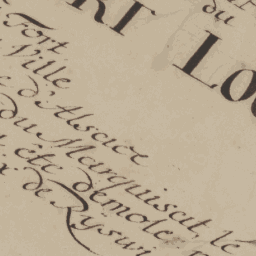 du
RT LO
Fort
Ville
d'Alsace
du Marquisat le
été demolé
de Ryswi